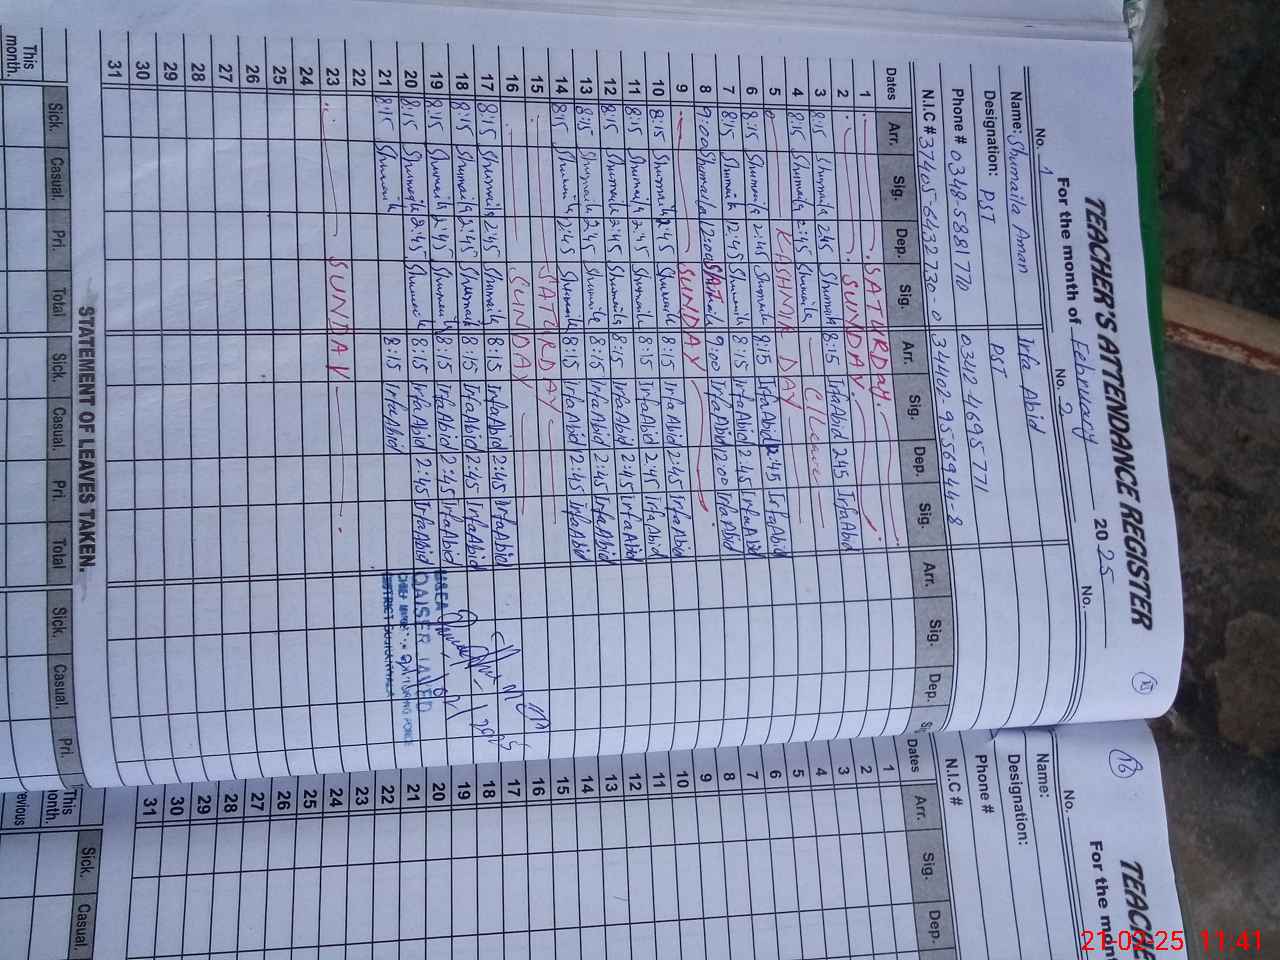 TEACHER'S ATTENDANCE REGISTER
For the month of February 2025
No. 1 No. 2 No.
Name: Shumaila Aman Irfa Abid
Designation: PST PST
Phone # 0348-5881770 0342 4695771
N.I.C # 37405-6432730-0 34402-9556944-8
Dates Arr. Sig. Dep. Sig. Arr. Sig. Dep. Sig. Arr. Sig. Dep.
1 SATURDAY.
2 SUNDAY.
3 8:15 Shumaila 2:45 Shumaila 8:15 Irfa Abid 2:45 Irfa Abid
4 8:15 Shumaila 2:45 Shumaila C/Leave
5 KASHMIR DAY
6 8:15 Shumaila 2:45 Shumaila 8:15 Irfa Abid 2:45 Irfa Abid
7 8:15 Shumaila 2:45 Shumaila 8:15 Irfa Abid 2:45 Irfa Abid
8 9:00 Shumaila 12:00 Shumaila 9:00 Irfa Abid 12:00 Irfa Abid
9 SUNDAY
10 8:15 Shumaila 2:45 Shumaila 8:15 Irfa Abid 2:45 Irfa Abid
11 8:15 Shumaila 2:45 Shumaila 8:15 Irfa Abid 2:45 Irfa Abid
12 8:15 Shumaila 2:45 Shumaila 8:15 Irfa Abid 2:45 Irfa Abid
13 8:15 Shumaila 2:45 Shumaila 8:15 Irfa Abid 2:45 Irfa Abid
14 8:15 Shumaila 2:45 Shumaila 8:15 Irfa Abid 2:45 Irfa Abid
15 SATURDAY
16 SUNDAY
17 8:15 Shumaila 2:45 Shumaila 8:15 Irfa Abid 2:45 Irfa Abid
18 8:15 Shumaila 2:45 Shumaila 8:15 Irfa Abid 2:45 Irfa Abid
19 8:15 Shumaila 2:45 Shumaila 8:15 Irfa Abid 2:45 Irfa Abid
20 8:15 Shumaila 2:45 Shumaila 8:15 Irfa Abid 2:45 Irfa Abid
21 8:15 Shumaila 8:15 Irfa Abid
22
23 SUNDAY
24
25
26
27
28
29
30
31
MEA
QAISER JAVED
DISTRICT
STATEMENT OF LEAVES TAKEN.
Sick. Casual. Pri. Total Sick. Casual. Pri. Total Sick. Casual. Pri.
This month.
18
TEACHE
For the mon
No.
Name:
Designation:
Phone #
N.I.C #
Dates Arr. Sig. Dep.
1
2
3
4
5
6
7
8
9
10
11
12
13
14
15
16
17
18
19
20
21
22
23
24
25
26
27
28
29
30
31
Sick. Casual.
This
onth.
evious
21-02-25 11:41